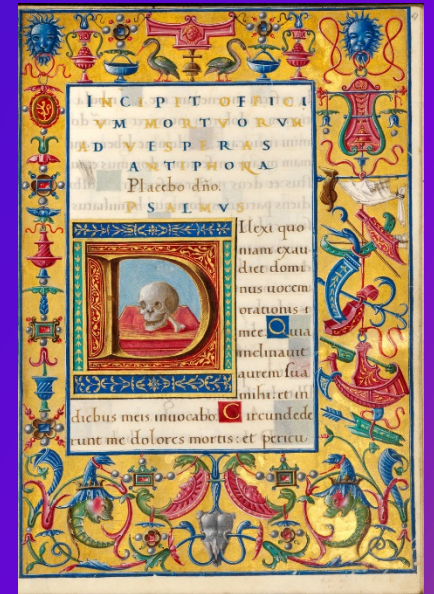 INCIPIT OFFICI
VM MORTVORVM
AD VESPERAS
ANTIPHONA
Placebo dño.
PSALMVS
DIlexi quo
niam exau
diet domi
nus vocem
orationis
mee. Quia
inclinauit
aurem
mihi: et in
diebus meis inuocabo Circundede
runt me dolores mortis: et pericu